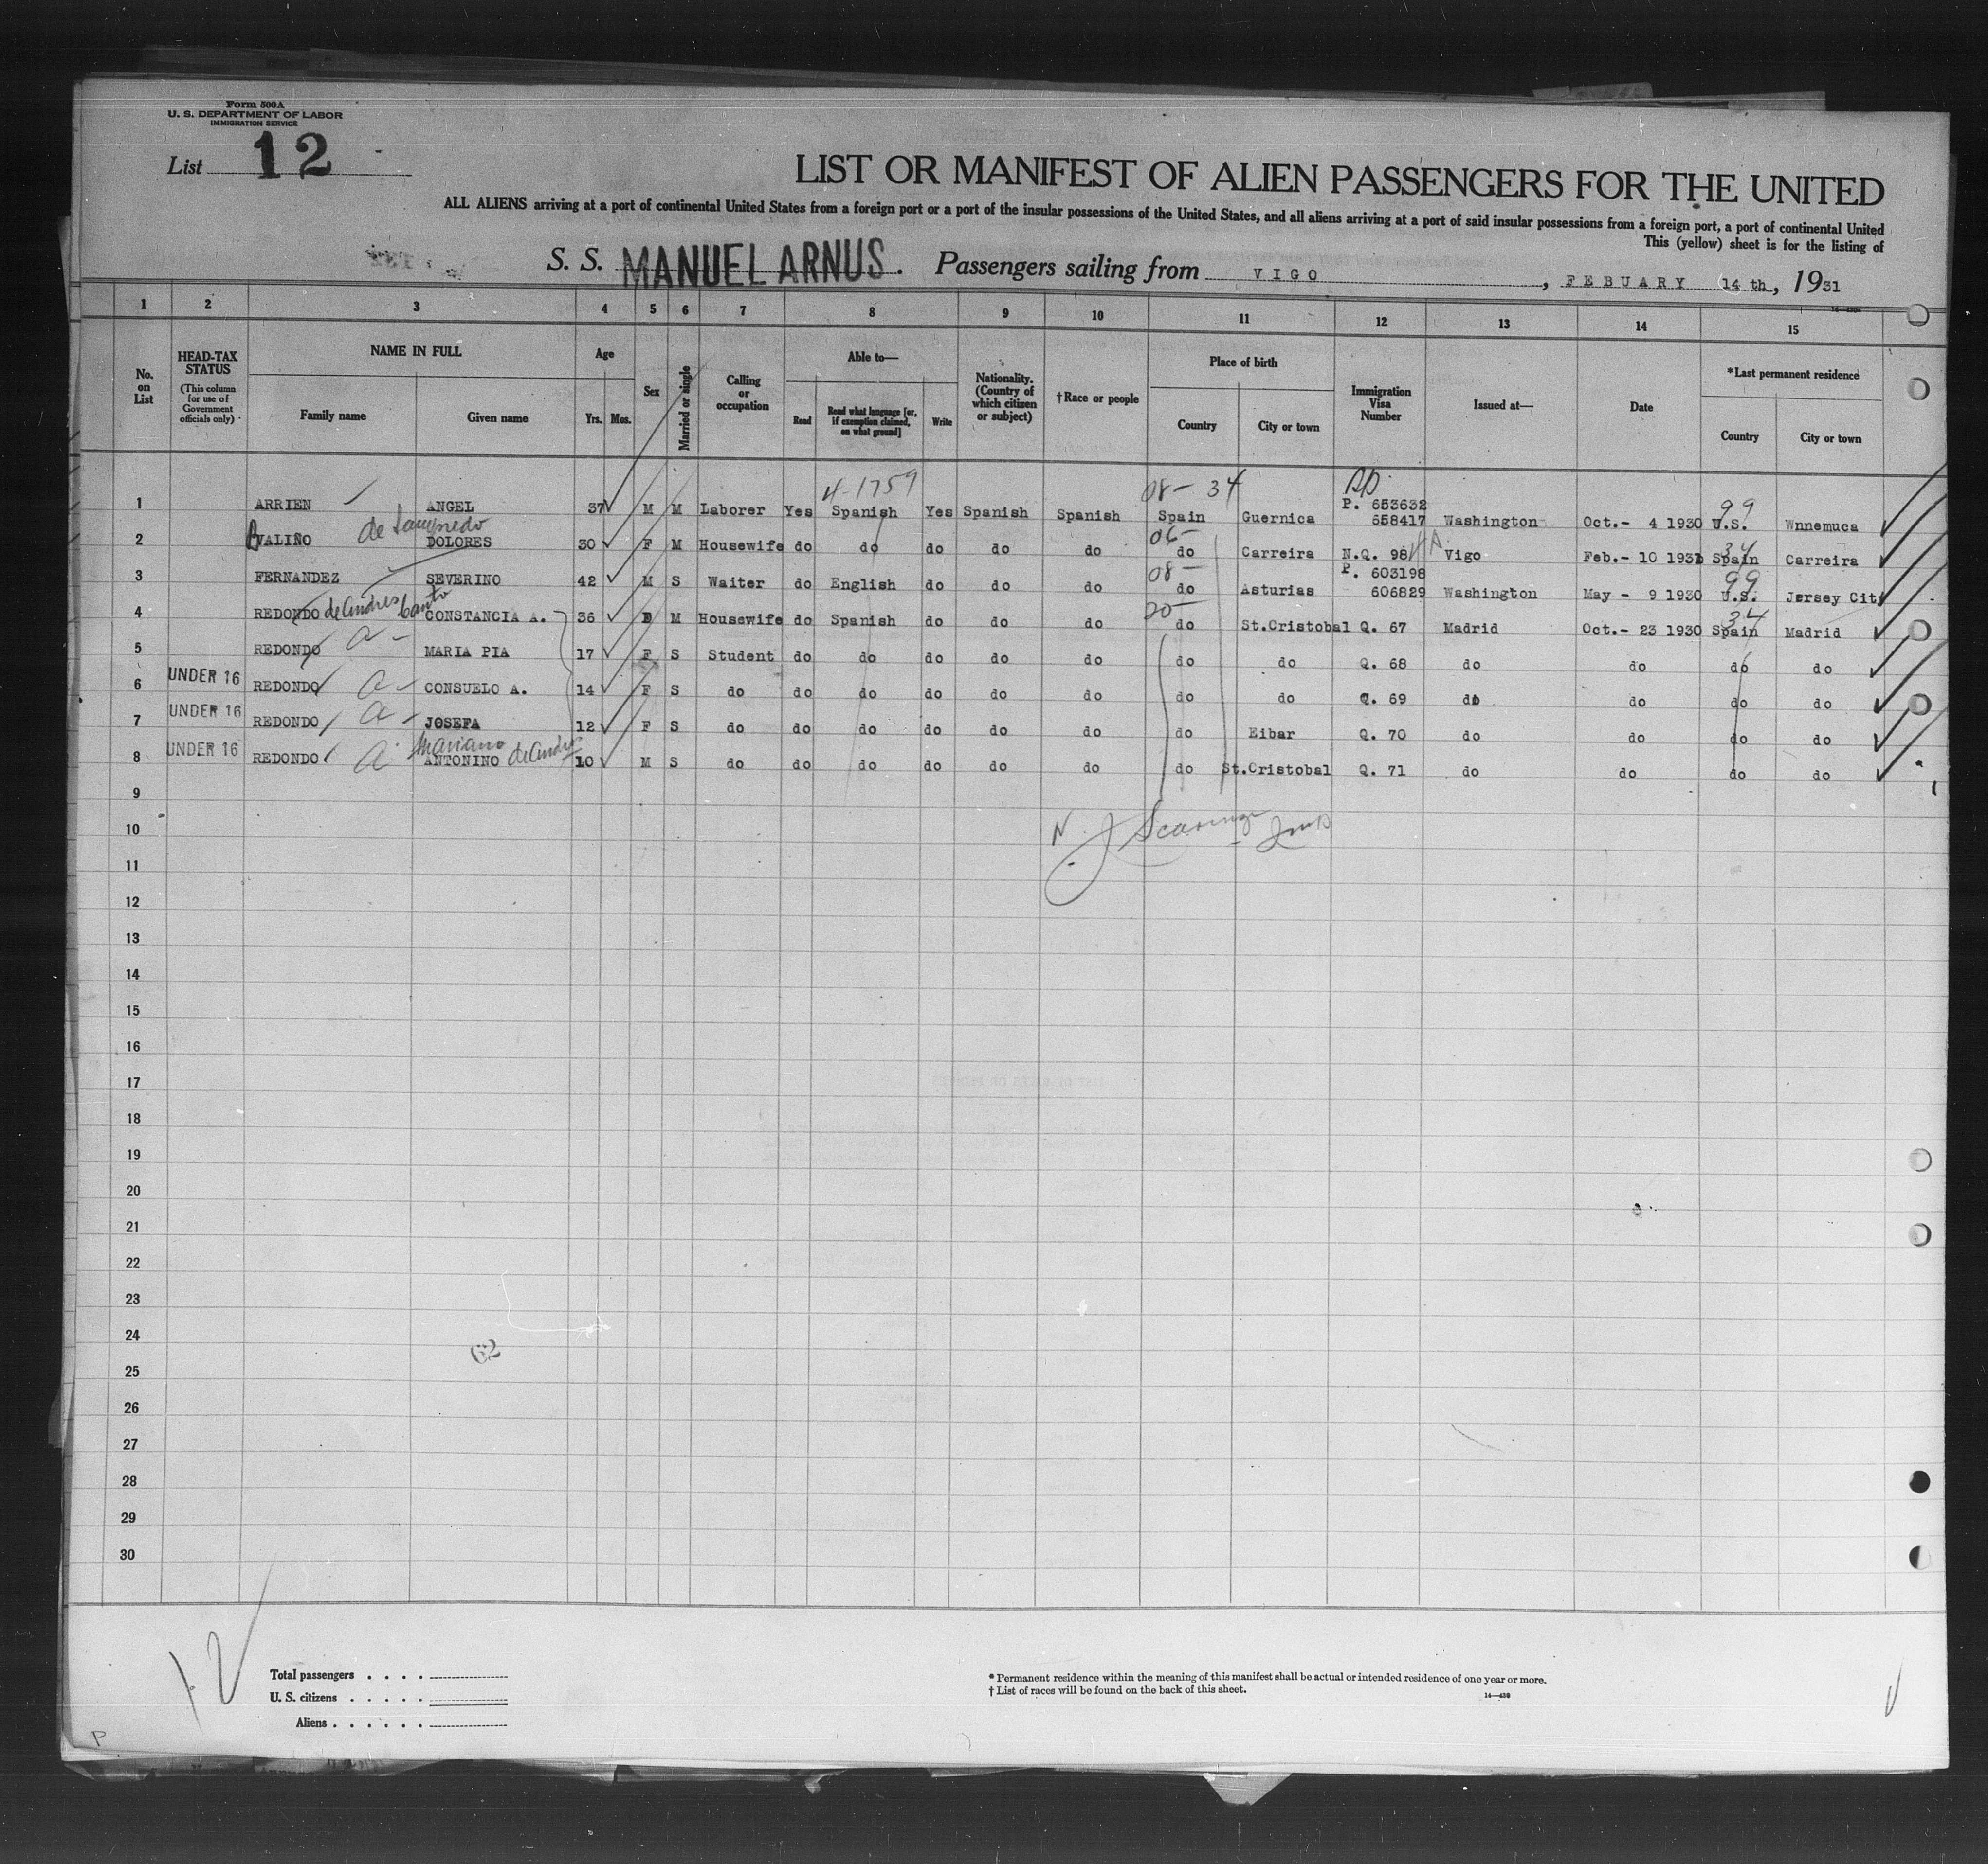 Form 500A
U. S. DEPARTMENT OF LABOR
IMMIGRATION SERVICE
List 12
LIST OR MANIFEST OF ALIEN PASSENGERS FOR THE UNITED
ALL ALIENS arriving at a port of continental United States from a foreign port or a port of the insular possessions of the United States, and all aliens arriving at a port of said insular possessions from a foreign port, a port of continental United
This (yellow) sheet is for the listing of
S. S. MANUEL ARNUS. Passengers sailing from VIGO, FEBUARY 14 th, 1931
1 2 3 4 5 6 7 8 9 10 11 12 13 14 15
No. on List
HEAD-TAX STATUS
(This column for use of Government officials only)
NAME IN FULL
Family name
Given name
Age
Yrs. Mos.
Sex
Married or single
Calling or occupation
Able to—
Read
Read what language [or, if exemption claimed, on what ground]
Write
Nationality. (Country of which citizen or subject)
†Race or people
Place of birth
Country
City or town
Immigration Visa Number
Issued at—
Date
*Last permanent residence
Country
City or town
4-1759 08- 34 99
1 ARRIEN ANGEL 37 M M Laborer Yes Spanish Yes Spanish Spanish Spain Guernica P. 653632 658417 Washington Oct.- 4 1930 U.S. Wnnemuca
06- 34
2 VALIÑO DOLORES 30 F M Housewife do do do do do do Carreira N.Q. 98 Vigo Feb.- 10 1931 Spain Carreira
08- 99
3 FERNANDEZ SEVERINO 42 M S Waiter do English do do do do Asturias P. 603198 606829 Washington May - 9 1930 U.S. Jersey City
20- 34
4 REDONDO de Andres CONSTANCIA A. 36 M Housewife do Spanish do do do do St.Cristobal Q. 67 Madrid Oct.- 23 1930 Spain Madrid
5 REDONDO a- MARIA PIA 17 F S Student do do do do do do do Q. 68 do do do do
6 UNDER 16 REDONDO a- CONSUELO A. 14 F S do do do do do do do do Q. 69 do do do do
7 UNDER 16 REDONDO a- JOSEFA 12 F S do do do do do do do Eibar Q. 70 do do do do
Mariano
8 UNDER 16 REDONDO a ANTONINO 10 M S do do do do do do do St.Cristobal Q. 71 do do do do
9
10
11
12
13
14
15
16
17
18
19
20
21
22
23
24
25
26
27
28
29
30
62
12
Total passengers
U. S. citizens
Aliens
* Permanent residence within the meaning of this manifest shall be actual or intended residence of one year or more.
† List of races will be found on the back of this sheet.
14—430
P